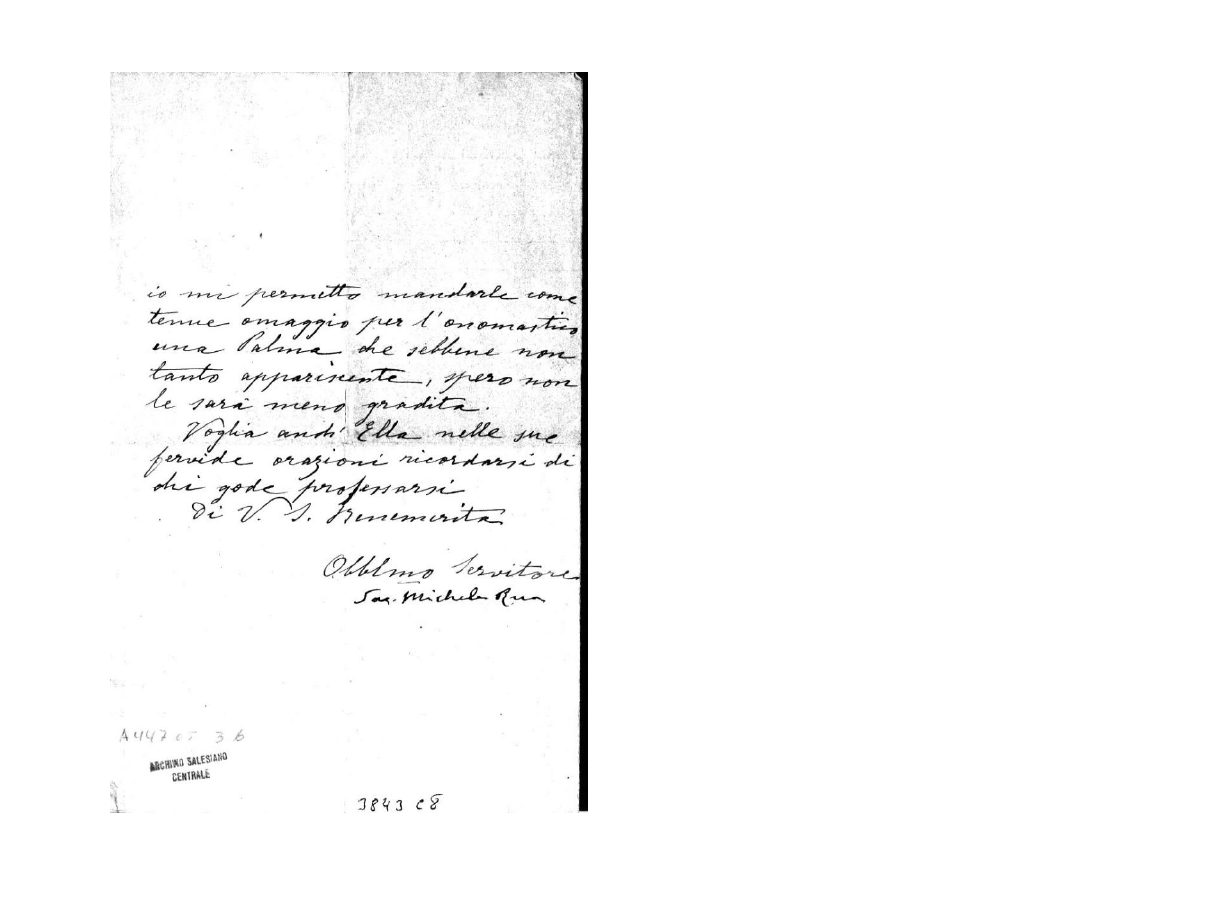 io mi permetto mandarle come
tenue omaggio per l'onomastico
una Palma che sebbene non
tanto appariscente, spero non
le sarà meno gradita.
Voglia anch' Ella nelle sue
fervide orazioni ricordarsi di
chi gode professarsi
Di V. S. Benemerita
Obblmo Servitore
Sac. Michele Rua
A447 3 6
ARCHIVIO SALESIANO
CENTRALE
3843 C8